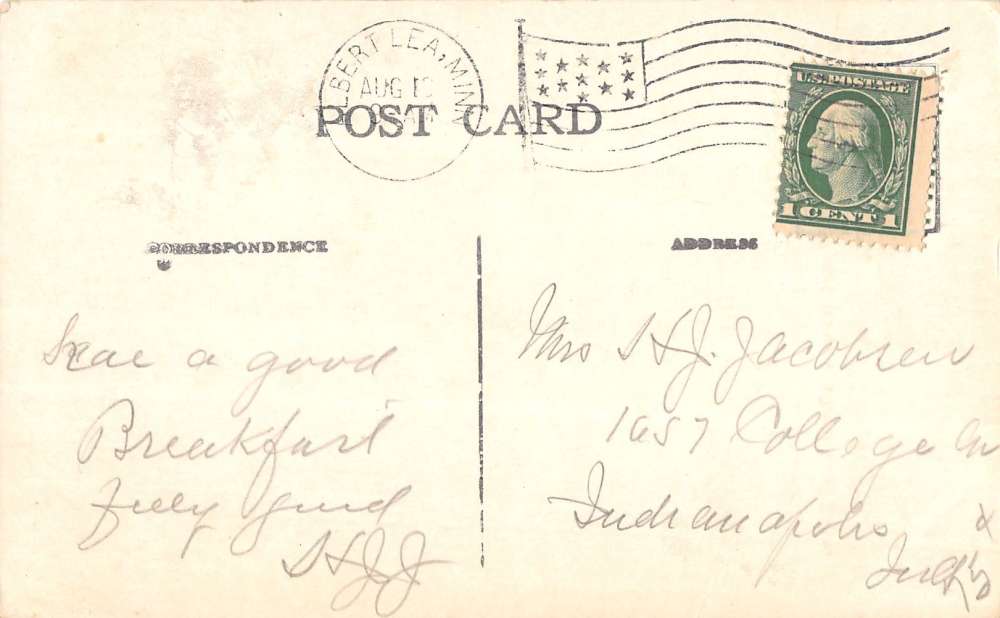 ALBERT LEA, MINN
AUG
POST CARD
U.S. POSTAGE
1 CENT 1
CORRESPONDENCE
ADDRESS
a good
Breakfast
good
H J J
Mrs H J. Jacobsen
1657 College Av
Indianapolis
Ind